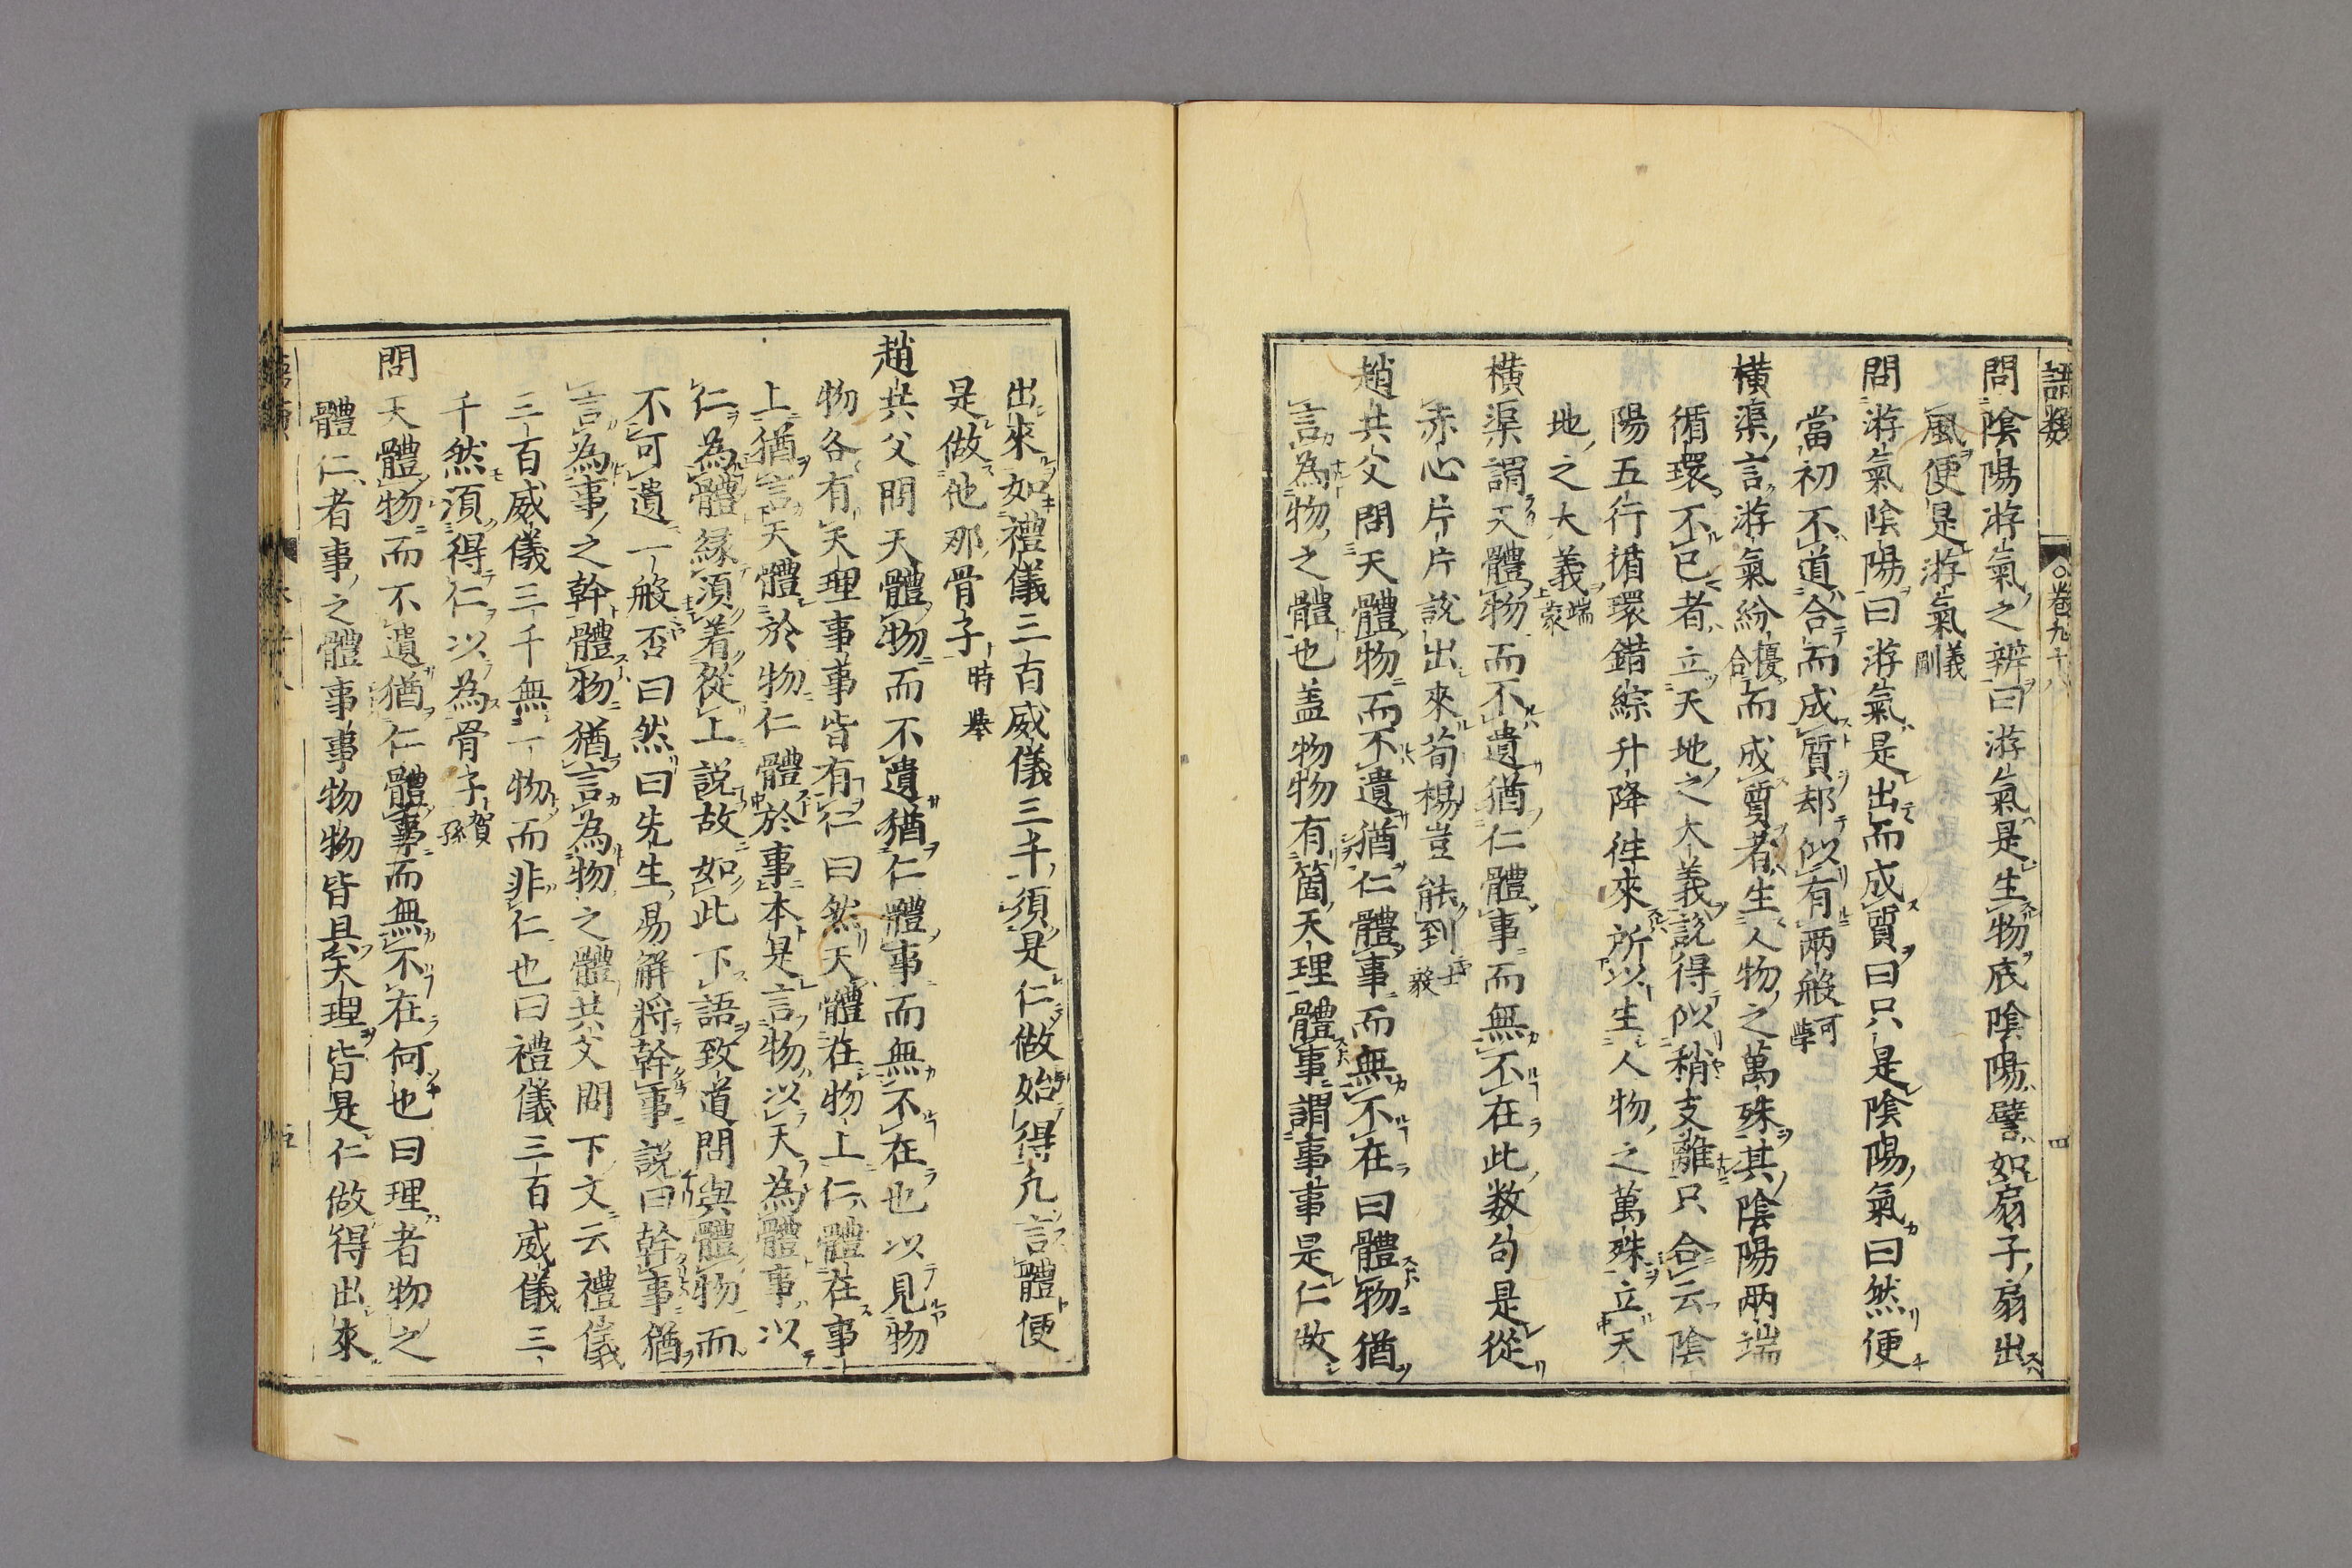 語類 〇卷九十八 四
問陰陽游氣之辨曰游氣是生物底陰陽譬如扇子扇出
風便是游氣義剛
問游氣陰陽曰游氣是出而成質曰只是陰陽氣曰然便
當初不道合而成質却似有兩般可學
橫渠言游氣紛擾合而成質者生人物之萬殊其陰陽兩端
循環不已者立天地之大義說得似稍支離只合云陰
陽五行循環錯綜升降往來所以生人物之萬殊立天
地之大義端蒙
橫渠謂天體物而不遺猶仁體事而無不在此数句是從
赤心片片說出來荀楊豈能到士毅
趙共父問天體物而不遺猶仁體事而無不在曰體物猶
言為物之體也盖物物有箇天理體事謂事事是仁做
出來如禮儀三百威儀三千須是仁做始得凢言體便
是做他那骨子時舉
趙共父問天體物而不遺猶仁體事而無不在也以見物
物各有天理事事皆有仁曰然天體在物上仁體在事
上猶言天體於物仁體於事本是言物以天為體事以
仁為體緣須着從上說故如此下語致道問與體物而
不可遺一般否曰然曰先生易解將幹事說曰幹事猶
言為事之幹體物猶言為物之體共父問下文云禮儀
三百威儀三千無一物而非仁也曰禮儀三百威儀三
千然須得仁以為骨子賀孫
問天體物而不遺猶仁體事而無不在何也曰理者物之
體仁者事之體事事物物皆具天理皆是仁做得出來
五